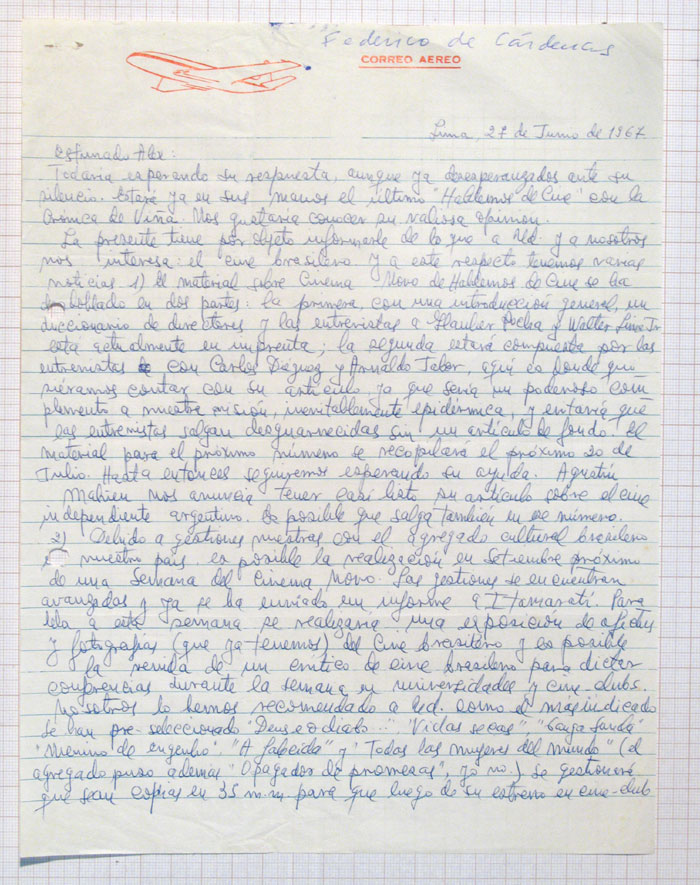 Federico de Cárdenas
CORREO AEREO
Lima, 27 de Junio de 1967
Estimado Alex:
Todavía esperando su respuesta, aunque ya desesperanzados ante su
silencio. Estará ya en sus manos el último "Hablemos de Cine" con la
Crónica de Viña. Nos gustaría conocer su valiosa opinión.
La presente tiene por objeto informarle de lo que a Ud. y a nosotros
nos interesa: el cine brasilero. Y a este respecto tenemos varias
noticias 1) El material sobre Cinema Novo de Hablemos de Cine se ha
desdoblado en dos partes: la primera, con una introducción general, un
diccionario de directores y las entrevistas a Glauber Rocha y Walter Lima Jr.
está actualmente en imprenta; la segunda estará compuesta por las
entrevistas con Carlos Diéguez y Arnaldo Jabor, aquí es donde qui
siéramos contar con su artículo ya que sería un poderoso com
plemento a nuestra visión, inevitablemente epidérmica, y evitaría que
las entrevistas salgan desguarnecidas sin un artículo de fondo. El
material para el próximo número se recopilará el próximo 20 de
Julio. Hasta entonces seguiremos esperando su ayuda. Agustín
Mahieu nos anuncia tener casi listo su artículo sobre el cine
independiente argentino. Es posible que salga también en ese número.
2) Debido a gestiones nuestras con el agregado cultural brasilero
nuestro país, es posible la realización en Setiembre próximo
de una Semana del Cinema Novo. Las gestiones se encuentran
avanzadas y ya se ha enviado un informe a Itamaratí. Para
lela a esta semana se realizaría una exposición de afiches
y fotografías (que ya tenemos) del Cine brasilero y es posible
la venida de un crítico de cine brasilero para dictar
conferencias durante la semana en universidades y cine-clubs.
Nosotros lo hemos recomendado a Ud. como el más indicado
Se han pre-seleccionado "Deus e o diabo...", "Vidas secas", "Ganga Zumba"
"Menino de engenho", "A falecida" y "Todas las mujeres del mundo" (el
agregado puso además "O pagador de promesas", yo no.) Se gestionará
que sean copias en 35 mm para que luego de su estreno en cine-club